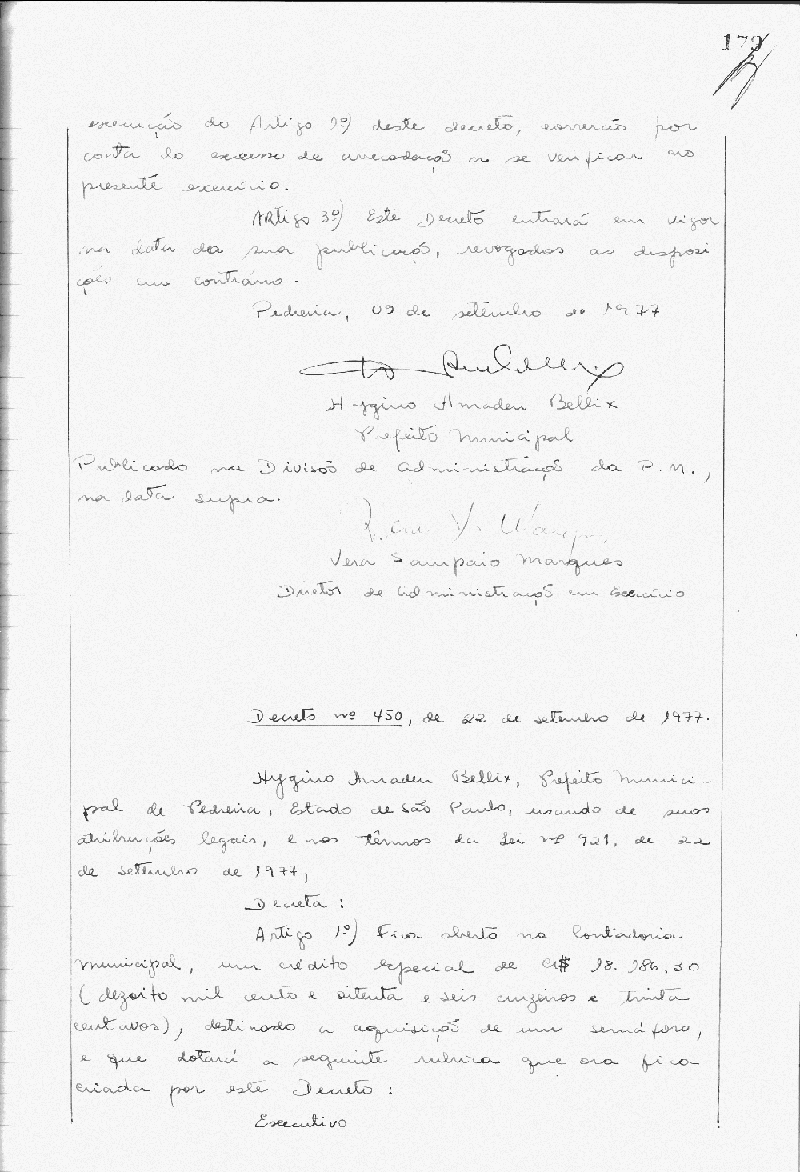 179
execução do Artigo 1º) deste decreto, correrão por
conta do excesso de arrecadação a se verificar no
presente exercício.
Artigo 3º) Este Decreto entrará em vigor
na data da sua publicação, revogadas as disposi
ções em contrário.
Pedreira, 09 de setembro de 1977
Hygino Amadeu Bellix
Prefeito Municipal
Publicado na Divisão de Administração da P.M.,
na data supra.
Vera Sampaio Marques
Diretor de Administração em Exercício
Decreto nº 450, de 22 de setembro de 1977.
Hygino Amadeu Bellix, Prefeito Munici-
pal de Pedreira, Estado de São Paulo, usando de suas
atribuições legais, e nos têrmos da Lei nº 921, de 22
de setembro de 1977,
Decreta:
Artigo 1º) Fica aberto na Contadoria
Municipal, um crédito especial de Cr$ 18.186,30
(dezoito mil cento e oitenta e seis cruzeiros e trinta
centavos), destinado a aquisição de um semáforo,
e que dotará a seguinte rubrica que ora fica
criada por este Decreto:
Executivo